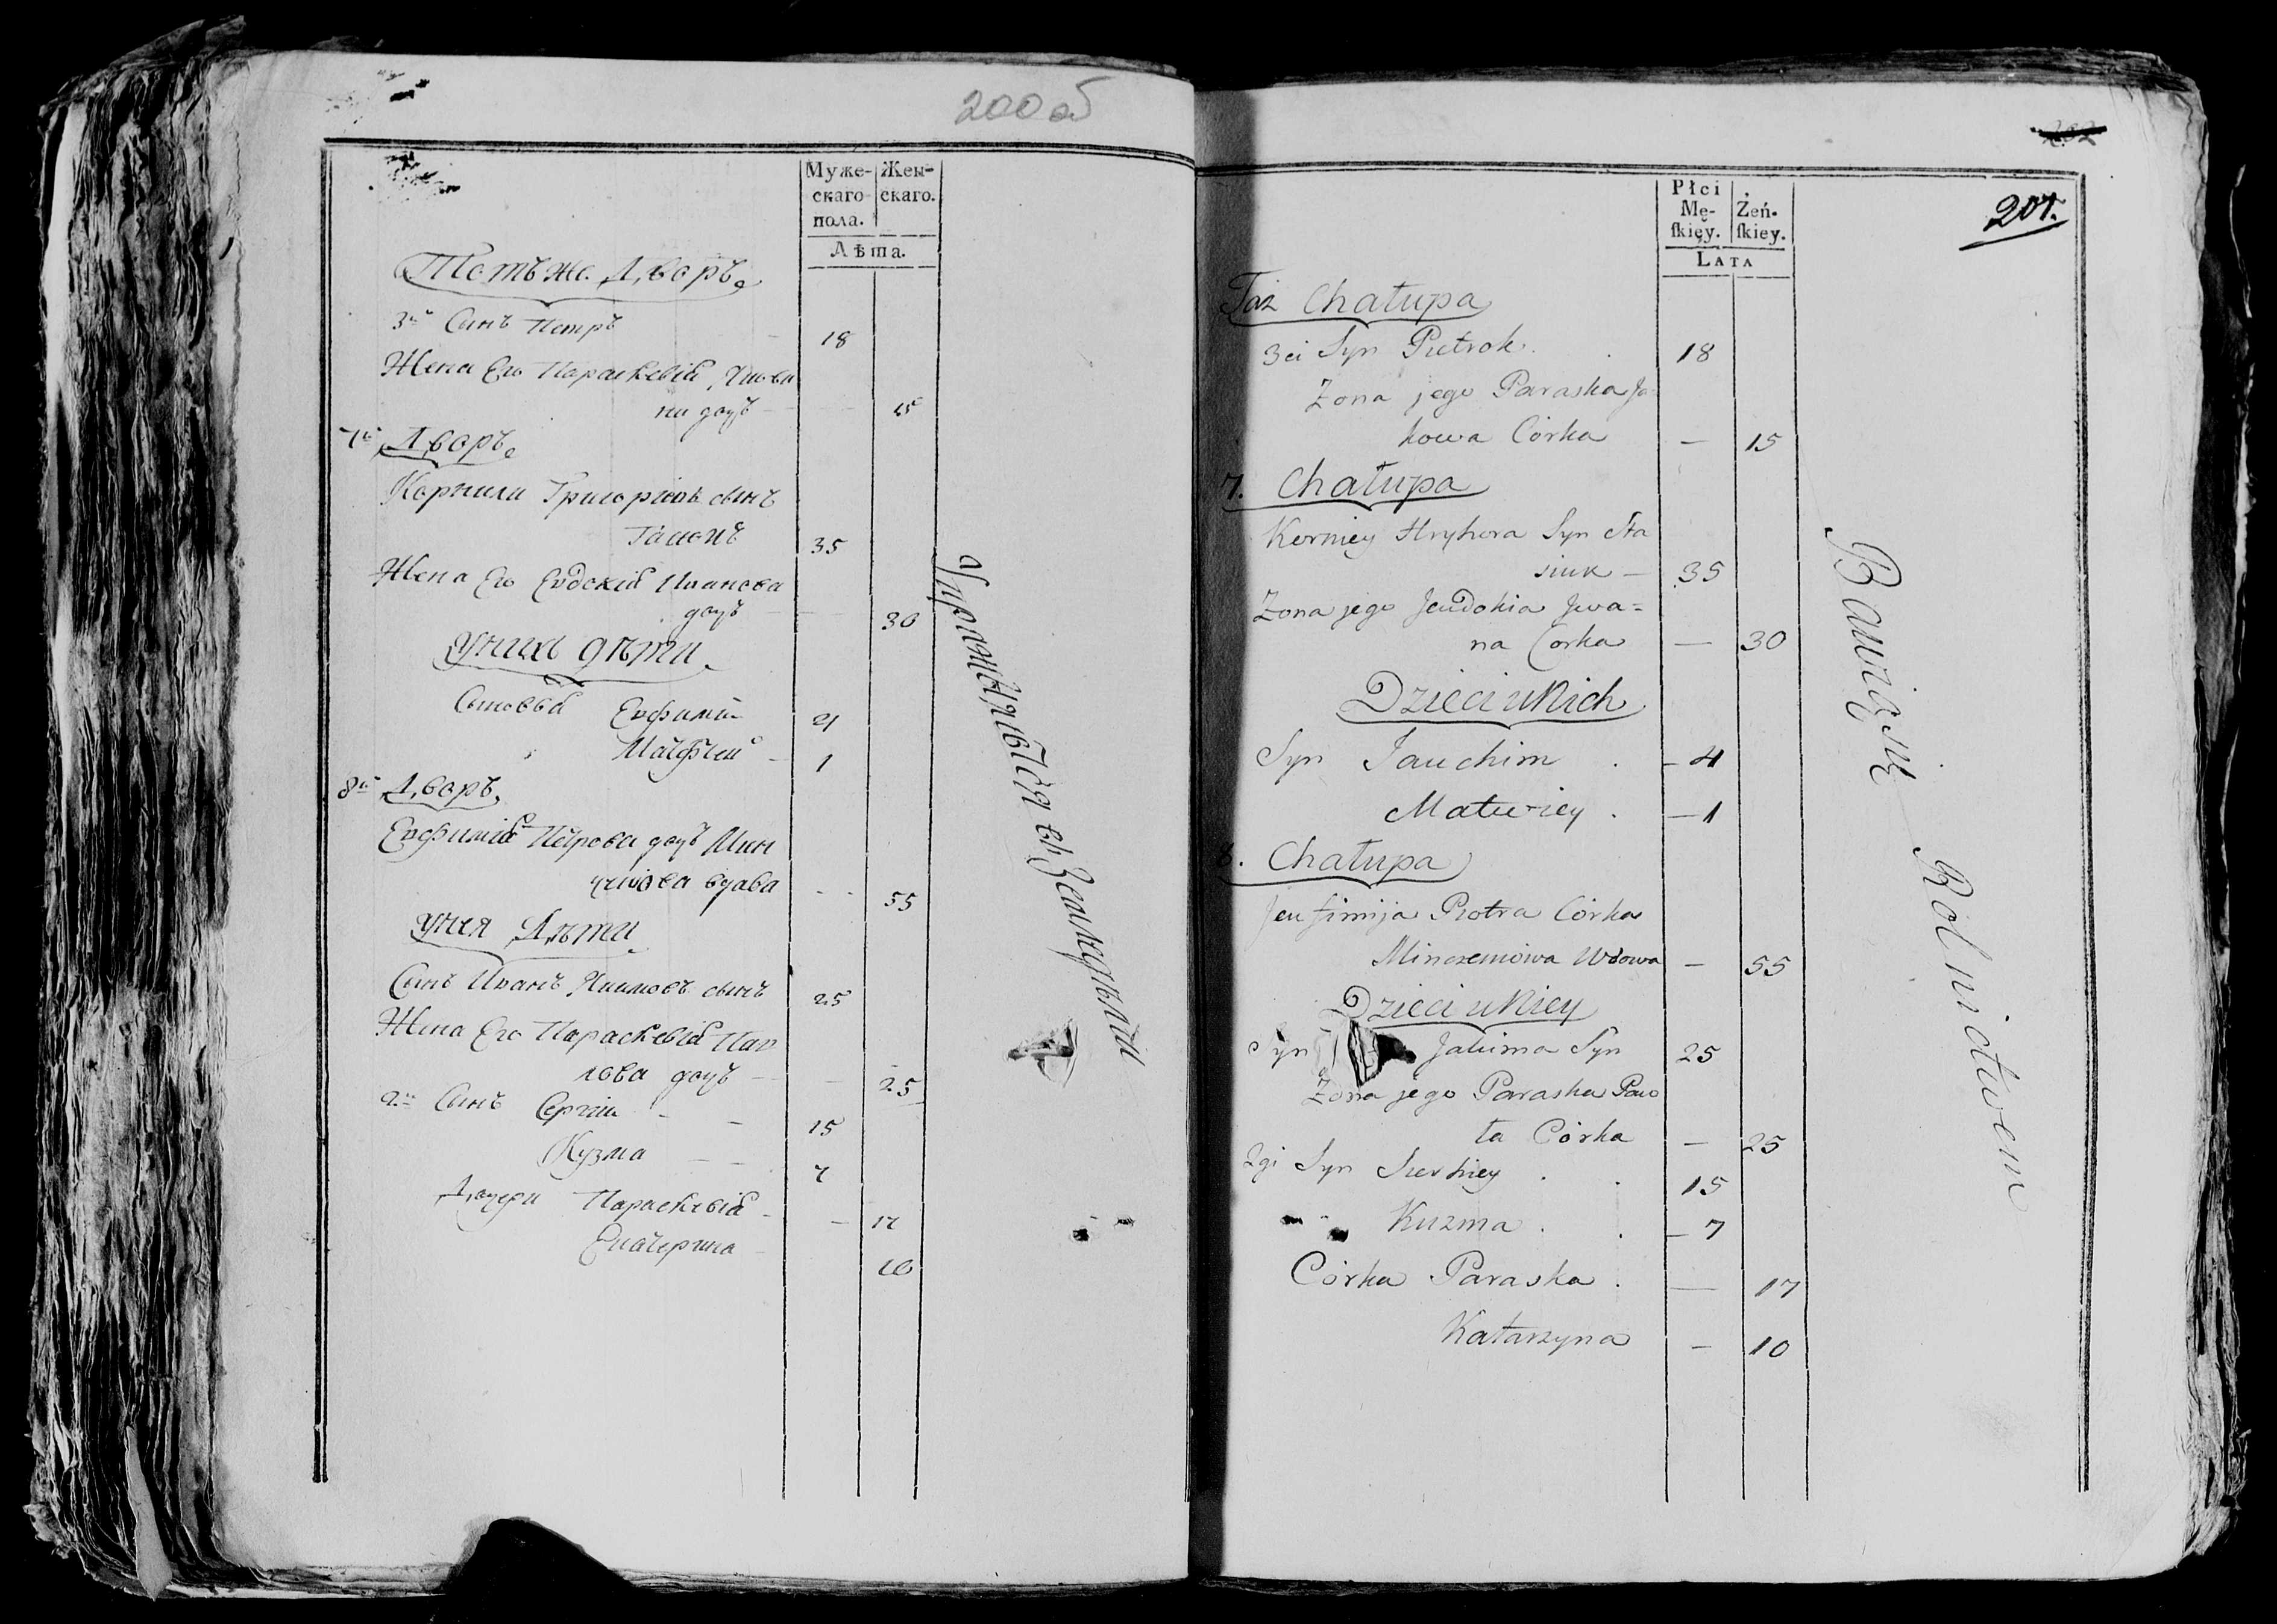 200 об
Муже-
скаго
пола.
Жен-
скаго.
Лѣта.
Тотъ же Дворъ
3й Сынъ Петръ 18
Жена Его Параскевія Якова
дочь 15
7й Дворъ
Корнили Григоріевъ сынъ
35
Жена Его Евдокія Иванова
дочь 30
У них дѣти
Сыновья Евфимій 4
Матфей 1
8й Дворъ
Евфимія Петрова дочь Мин
вдова 55
У нея Дѣти
Сынъ Иванъ Якимовъ сынъ 25
Жена Его Параскевія Пав
лова дочь 25
2й Сынъ Сергій 15
Кузма 7
Дочери Параскевія 17
Екатерина 10
Упражняется въ Земледѣліи
202
201.
Płci
Mę-
ſkiey.
Żeń-
ſkiey.
Lata
Taż Chałupa
3ci Syn Pietrok 18
Zona jego Paraska Ja
kowa Córka — 15
7. Chałupa
Korniey Hryhora Syn Sta
siuk — 35
Zona jego Jeudokia Jwa=
na Corka — 30
Dzieci u Nich
Syn Jauchim — 4
Matwiey — 1
8. Chałupa
Jeufimija Piotra Córka
Minczeniowa Wdowa — 55
Dzieci u Niey
Syn Jakima Syn 25
Zona jego Paraska Paw
ła Córka — 25
2gi Syn Sierhiey 15
Kuzma — 7
Córka Paraska — 17
Katarzyna — 10
Bawią się Rolnictwem